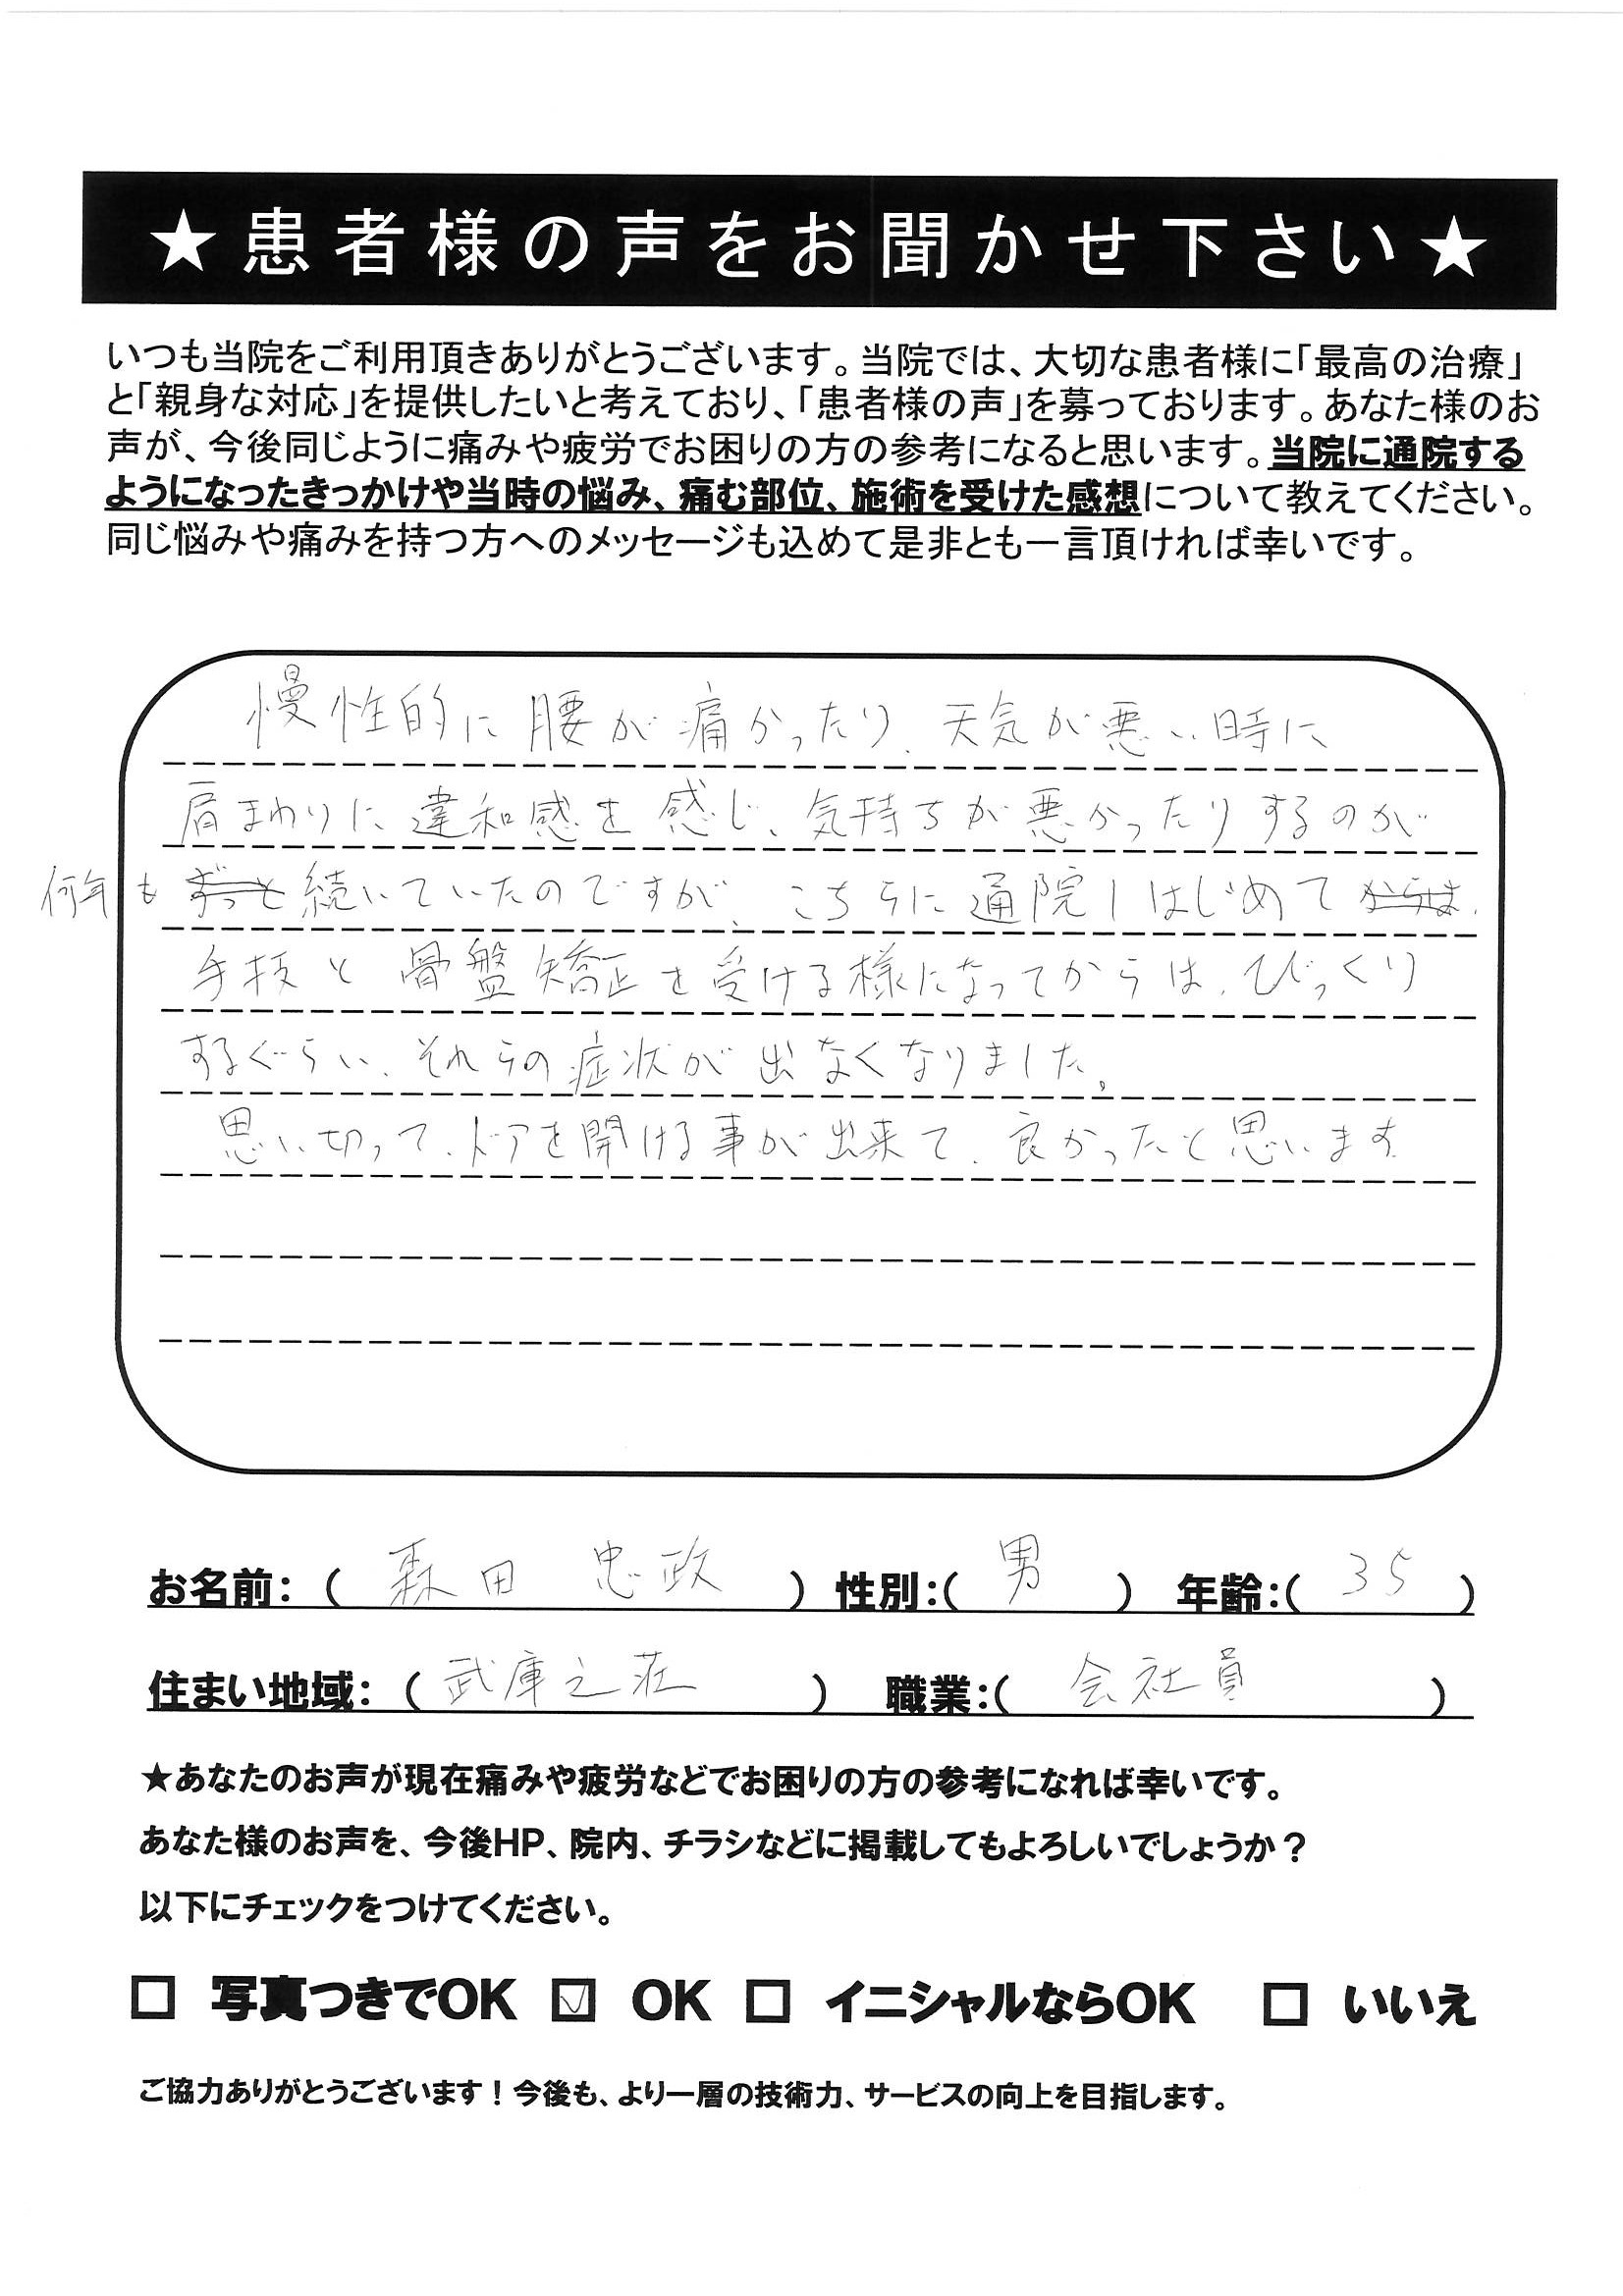 ★患者様の声をお聞かせ下さい★
いつも当院をご利用頂きありがとうございます。当院では、大切な患者様に「最高の治療」
と「親身な対応」を提供したいと考えており、「患者様の声」を募っております。あなた様のお
声が、今後同じように痛みや疲労でお困りの方の参考になると思います。当院に通院する
ようになったきっかけや当時の悩み、痛む部位、施術を受けた感想について教えてください。
同じ悩みや痛みを持つ方へのメッセージも込めて是非とも一言頂ければ幸いです。
慢性的に腰が痛かったり、天気が悪い時に
肩まわりに違和感を感じ、気持ちが悪かったりするのが
何年も ずっと 続いていたのですが、こちらに通院しはじめて からは、
手技と骨盤矯正を受ける様になってからは、びっくり
するぐらい、それらの症状が出なくなりました。
思い切って、ドアを開ける事が出来て、良かったと思います
お名前:( 森田 忠政 ) 性別:( 男 ) 年齢:( 35 )
住まい地域:( 武庫之荘 ) 職業:( 会社員 )
★あなたのお声が現在痛みや疲労などでお困りの方の参考になれば幸いです。
あなた様のお声を、今後HP、院内、チラシなどに掲載してもよろしいでしょうか？
以下にチェックをつけてください。
□ 写真つきでOK ☑ OK □ イニシャルならOK □ いいえ
ご協力ありがとうございます！今後も、より一層の技術力、サービスの向上を目指します。